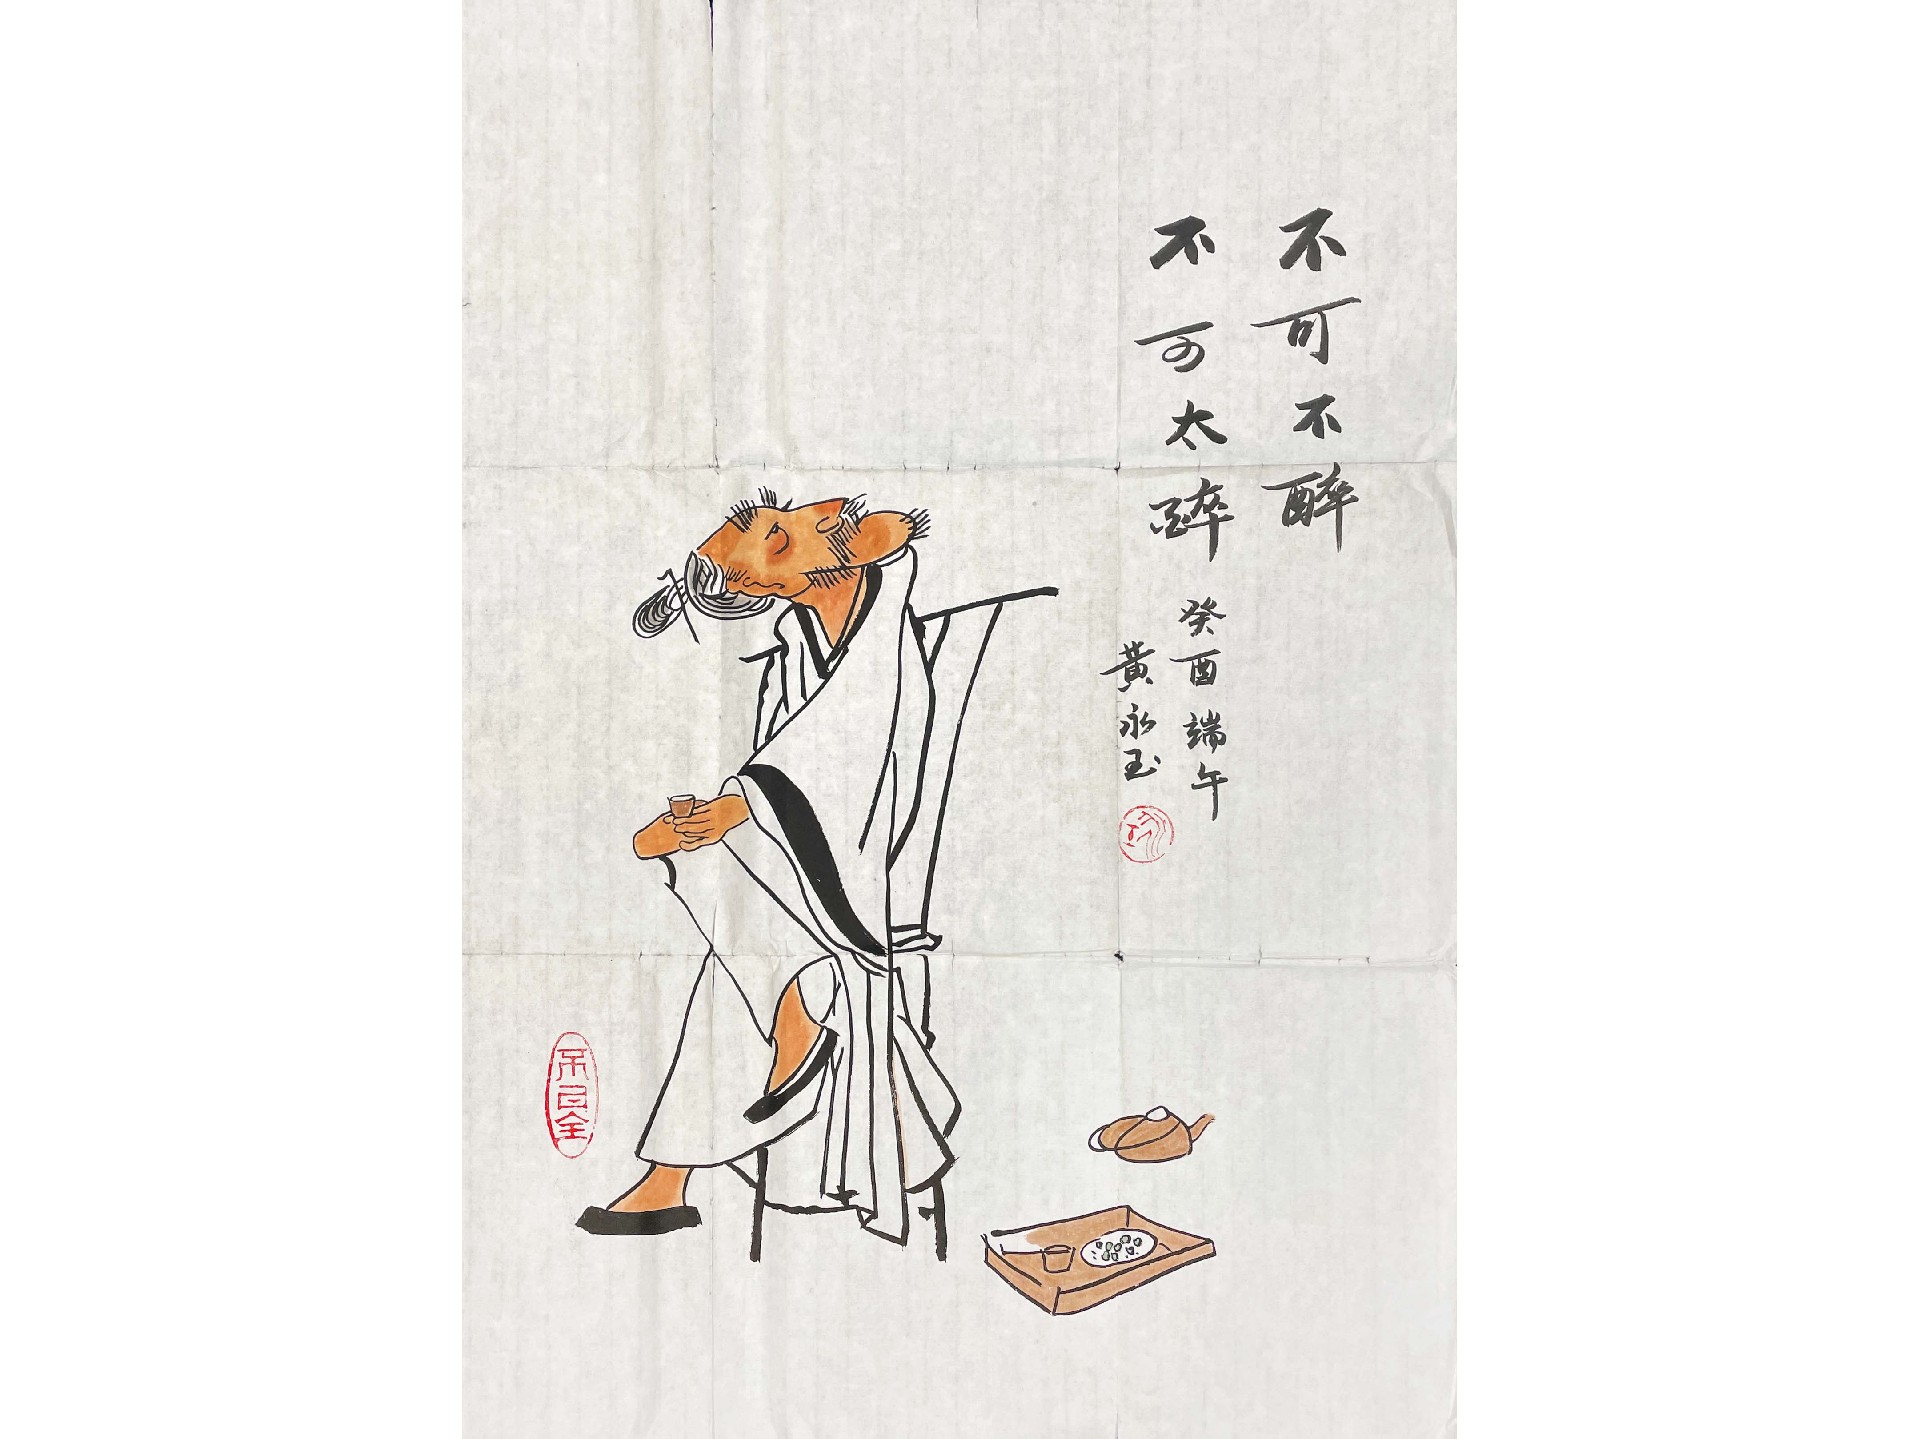 不可不醉
不可太醉
癸酉端午
黃永玉